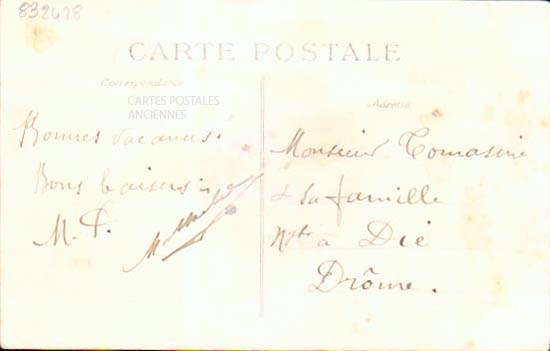 832478
CARTE POSTALE
Correspondance
CARTES POSTALES
ANCIENNES
Bonnes vacances.
Bons baisers
M.
Adresse
Monsieur Tomassin
& sa famille
à Die
Drôme.